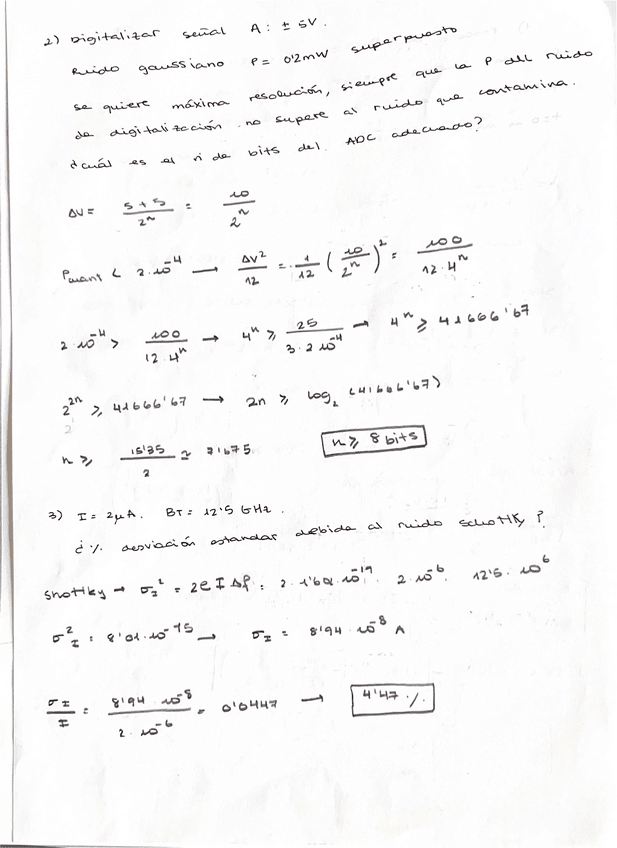 2) Digitalizar señal A: ± 5V.
Ruido gaussiano P = 0'2mW superpuesto
se quiere máxima resolución, siempre que la P del ruido
de digitalización no supere al ruido que contamina.
¿cuál es el nº de bits del ADC adecuado?
ΔV = (5+5)/2^n = 10/2^n
Pcuant < 2·10^-4 → ΔV²/12 = 1/12 (10/2^n)² = 100/(12·4^n)
2·10^-4 > 100/(12·4^n) → 4^n ≥ 25/(3·2·10^-4) → 4^n ≥ 41666'67
2^2n ≥ 41666'67 → 2n ≥ log₂ (41666'67)
n ≥ 15'35/2 ≃ 7'675. n ≥ 8 bits
3) I = 2μA. BT = 12'5 GHz.
¿% desviación estandar debida al ruido Schottky?
Shottky → σ_I² = 2e I Δf = 2·1'602·10^-19 · 2·10^-6 · 12'5·10^6
σ_I² = 8'01·10^-15 → σ_I = 8'94·10^-8 A
σ_I/I = (8'94·10^-8)/(2·10^-6) = 0'0447 → 4'47 %